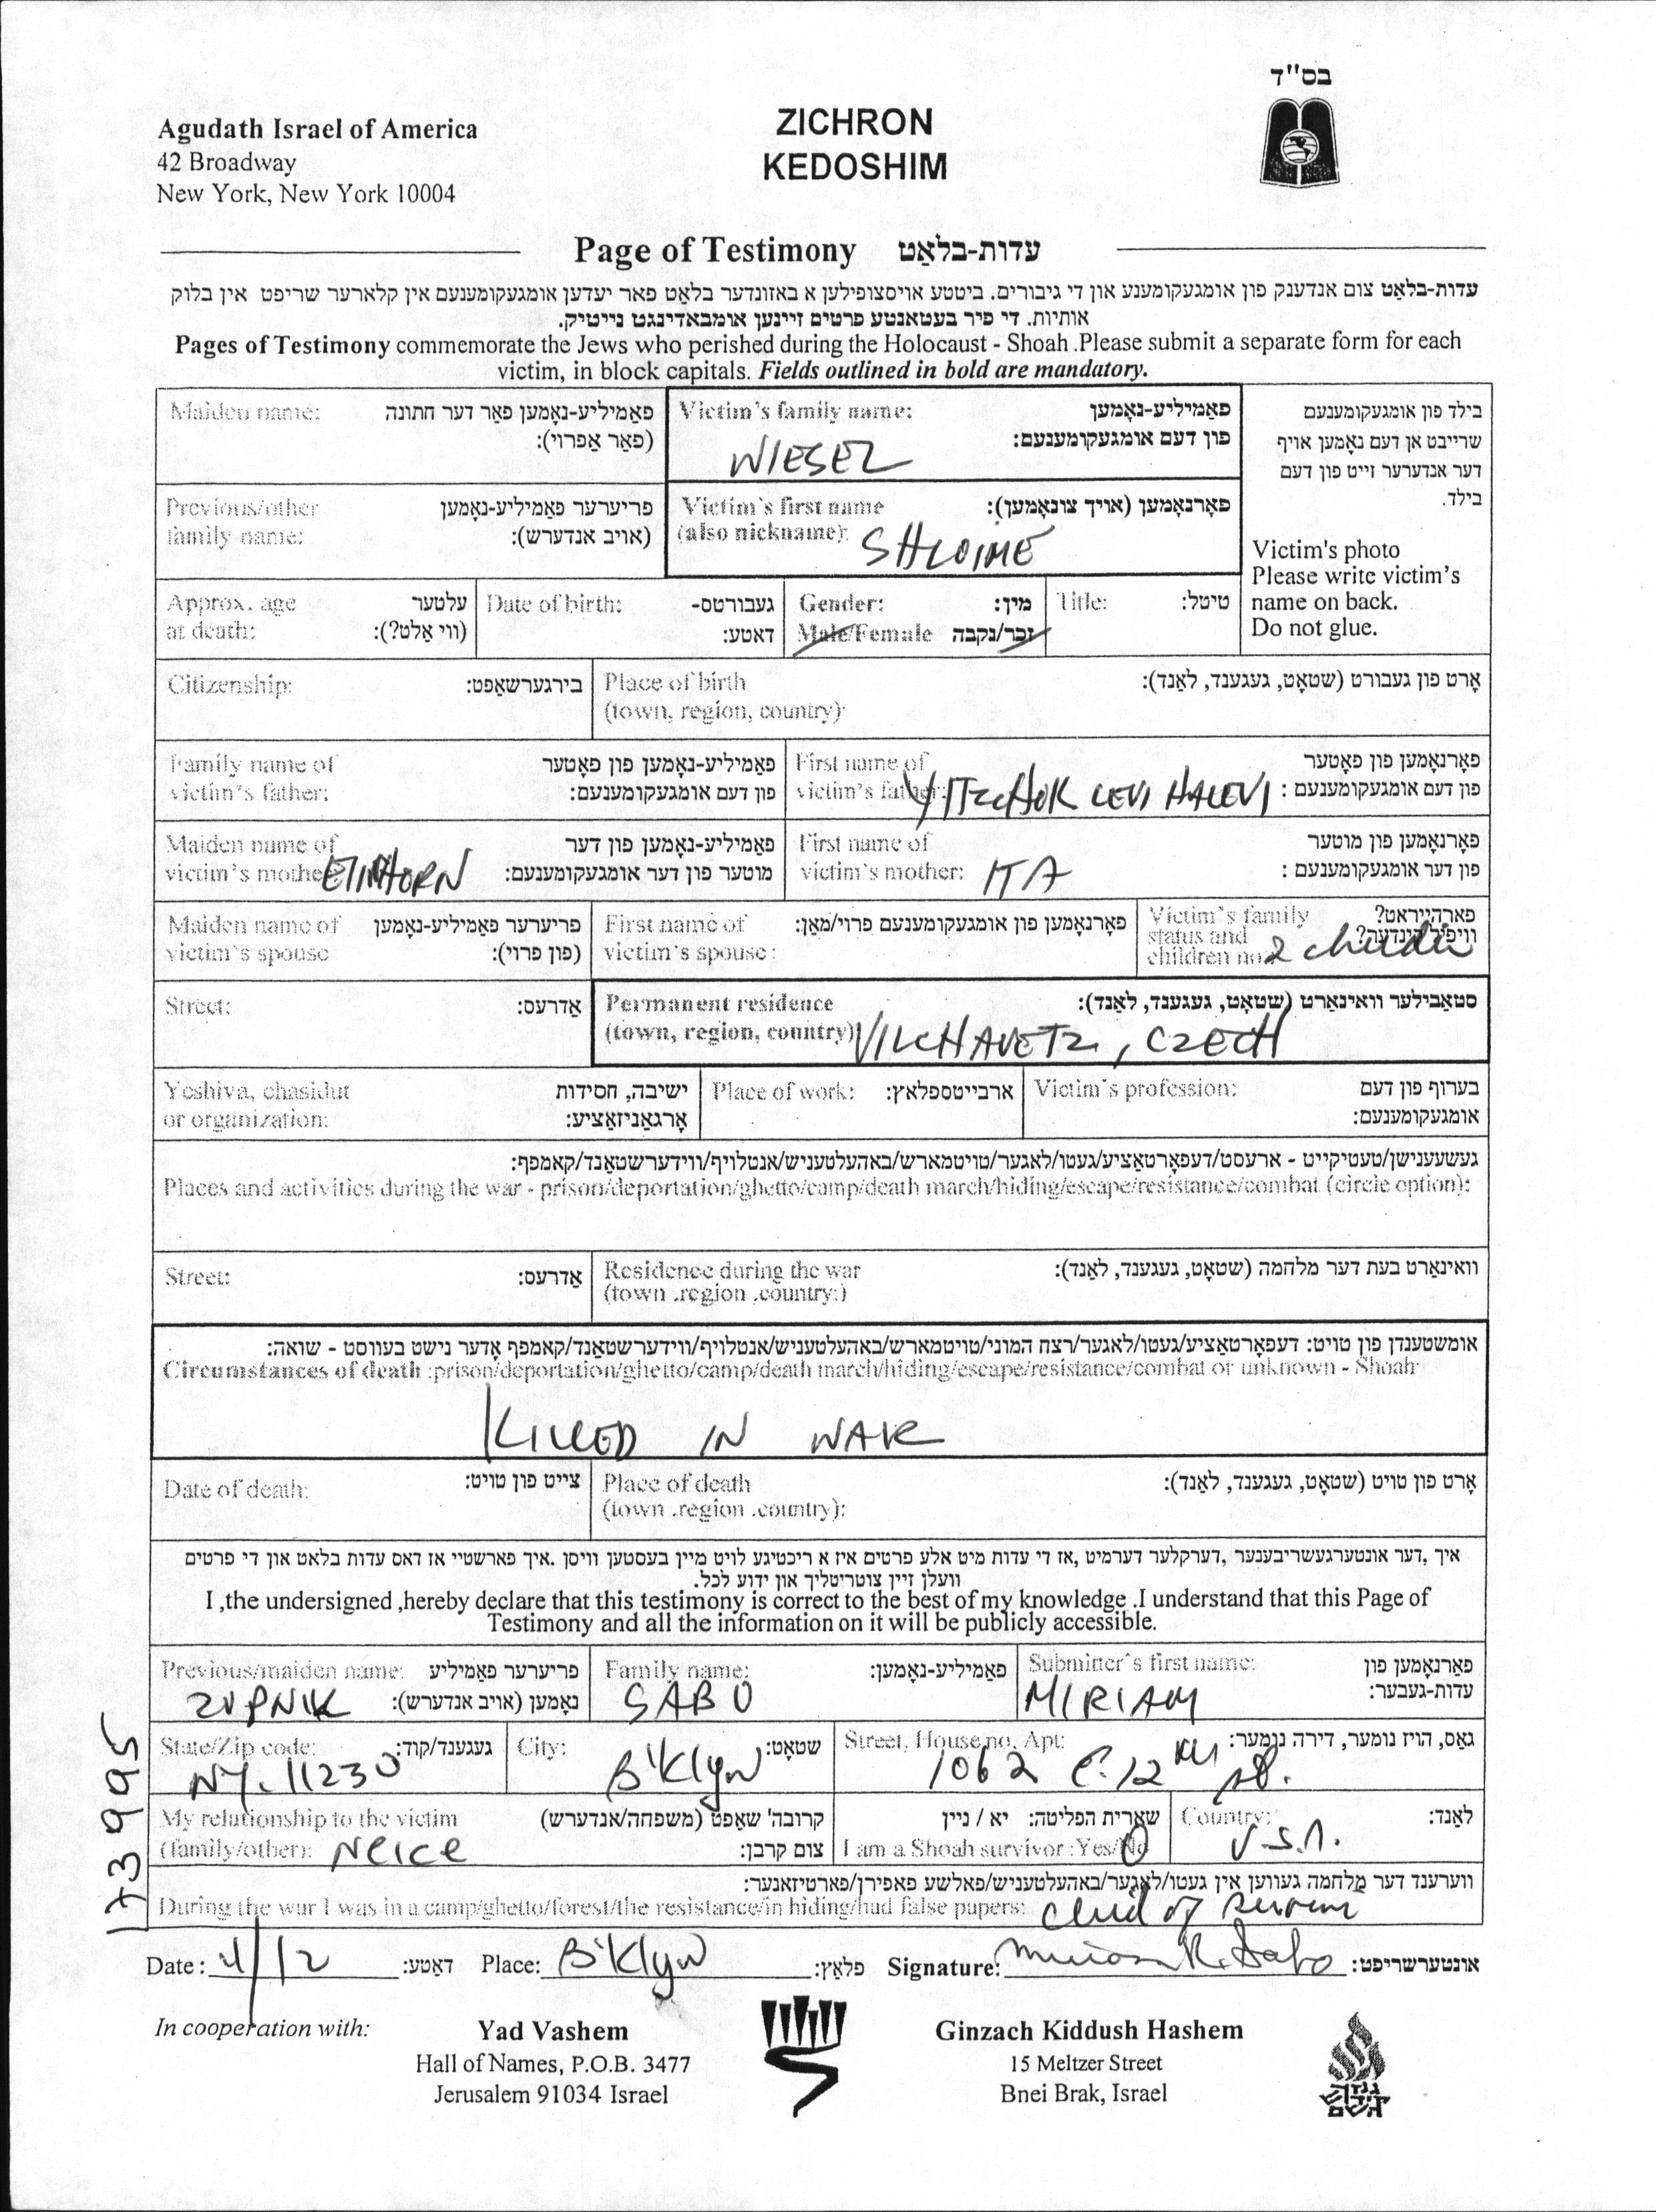 בס"ד
Agudath Israel of America
42 Broadway
New York, New York 10004
ZICHRON
KEDOSHIM
Page of Testimony עדות-בלאַט
עדות-בלאַט צום אנדענק פון אומגעקומענע און די גיבורים. ביטטע אויסצופילען א באזונדער בלאַט פאר יעדען אומגעקומענעם אין קלארער שריפט אין בלוק
אותיות. די פיר בעטאנטע פרטים זיינען אומבאדינגט נייטיק.
Pages of Testimony commemorate the Jews who perished during the Holocaust - Shoah .Please submit a separate form for each
victim, in block capitals. Fields outlined in bold are mandatory.
Maiden name: פאַמיליע-נאָמען פאַר דער חתונה
(פאַר אַפרוי):
Victim's family name: פאַמיליע-נאָמען
פון דעם אומגעקומענעם:
WIESEL
בילד פון אומגעקומענעם
שרייבט אן דעם נאָמען אויף
דער אנדערער זייט פון דעם
בילד.
Victim's photo
Please write victim's
name on back.
Do not glue.
Previous/other פריערער פאַמיליע-נאָמען
family name: (אויב אנדערש):
Victim's first name פאָרנאָמען (אויך צונאָמען):
(also nickname): SHLOIME
Approx. age עלטער
at death: (ווי אַלט?):
Date of birth: געבורטס-
דאטע:
Gender: מין:
Male/Female זכר/נקבה
Title: טיטל:
Citizenship: בירגערשאַפט:
Place of birth אָרט פון געבורט (שטאָט, געגענד, לאַנד):
(town, region, country):
Family name of פאַמיליע-נאָמען פון פאָטער
victim's father: פון דעם אומגעקומענעם:
First name of פאָרנאָמען פון פאָטער
victim's father: YITZCHOK LEVI HALEVI פון דעם אומגעקומענעם :
Maiden name of פאַמיליע-נאָמען פון דער
victim's mother EINHORN מוטער פון דער אומגעקומענעם:
First name of פאָרנאָמען פון מוטער
victim's mother: ITA פון דער אומגעקומענעם :
Maiden name of פריערער פאַמיליע-נאָמען
victim's spouse (פון פרוי):
First name of פאָרנאָמען פון אומגעקומענעם פרוי/מאַן:
victim's spouse :
Victim's family פארהייראט?
status and וויפיל קינדער?
children no. 2 children
Street: אַדרעס:
Permanent residence סטאַבילער וואינארט (שטאָט, געגענד, לאַנד):
(town, region, country) VILCHAVETZ, CZECH
Yeshiva, chasidut ישיבה, חסידות
or organization: אָרגאַניזאַציע:
Place of work: ארבייטספלאץ:
Victim's profession: בערוף פון דעם
אומגעקומענעם:
געשעענישן/טעטיקייט - ארעסט/דעפאָרטאַציע/געטו/לאגער/טויטמארש/באהעלטעניש/אנטלויף/ווידערשטאַנד/קאמפף:
Places and activities during the war - prison/deportation/ghetto/camp/death march/hiding/escape/resistance/combat (circle option):
Street: אַדרעס:
Residence during the war וואינארט בעת דער מלחמה (שטאָט, געגענד, לאַנד):
(town .region .country:)
אומשטענדן פון טויט: דעפאָרטאַציע/געטו/לאגער/רצח המוני/טויטמארש/באהעלטעניש/אנטלויף/ווידערשטאנד/קאמפף אָדער נישט בעווסט - שואה:
Circumstances of death :prison/deportation/ghetto/camp/death march/hiding/escape/resistance/combat or unknown - Shoah
KILLED IN WAR
Date of death: צייט פון טויט:
Place of death אָרט פון טויט (שטאָט, געגענד, לאַנד):
(town .region .country):
איך ,דער אונטערגעשריבענער ,דערקלער דערמיט ,אז די עדות מיט אלע פרטים איז א ריכטיגע לויט מיין בעסטען וויסן .איך פארשטיי אז דאס עדות בלאט און די פרטים
וועלן זיין צוטריטליך און ידוע לכל.
I ,the undersigned ,hereby declare that this testimony is correct to the best of my knowledge .I understand that this Page of
Testimony and all the information on it will be publicly accessible.
Previous/maiden name: פריערער פאַמיליע
ZUPNIK נאָמען (אויב אנדערש):
Family name: פאַמיליע-נאָמען:
SABO
Submitter's first name: פאַרנאָמען פון
MIRIAM עדות-געבער:
State/Zip code: געגענד/קוד:
NY. 11230
City: שטאָט:
B'klyn
Street, House no, Apt: גאַס, הויז נומער, דירה נומער:
1062 E. 12 TH St.
My relationship to the victim קרובה' שאַפט (משפחה/אנדערש)
(family/other): Neice צום קרבן:
שארית הפליטה: יא / ניין
I am a Shoah survivor :Yes/No
Country: לאַנד:
U.S.A.
ווערענד דער מלחמה געווען אין געטו/לאַגער/באהעלטעניש/פאלשע פאפירן/פארטיזאנער:
During the war I was in a camp/ghetto/forest/the resistance/in hiding/had false papers: child of
Date: 4/12 דאַטע: Place: B'klyn פלאַץ: Signature: Miriam R. Sabo אונטערשריפט:
173995
In cooperation with:
Yad Vashem
Hall of Names, P.O.B. 3477
Jerusalem 91034 Israel
Ginzach Kiddush Hashem
15 Meltzer Street
Bnei Brak, Israel
גנזך
קידוש
השם